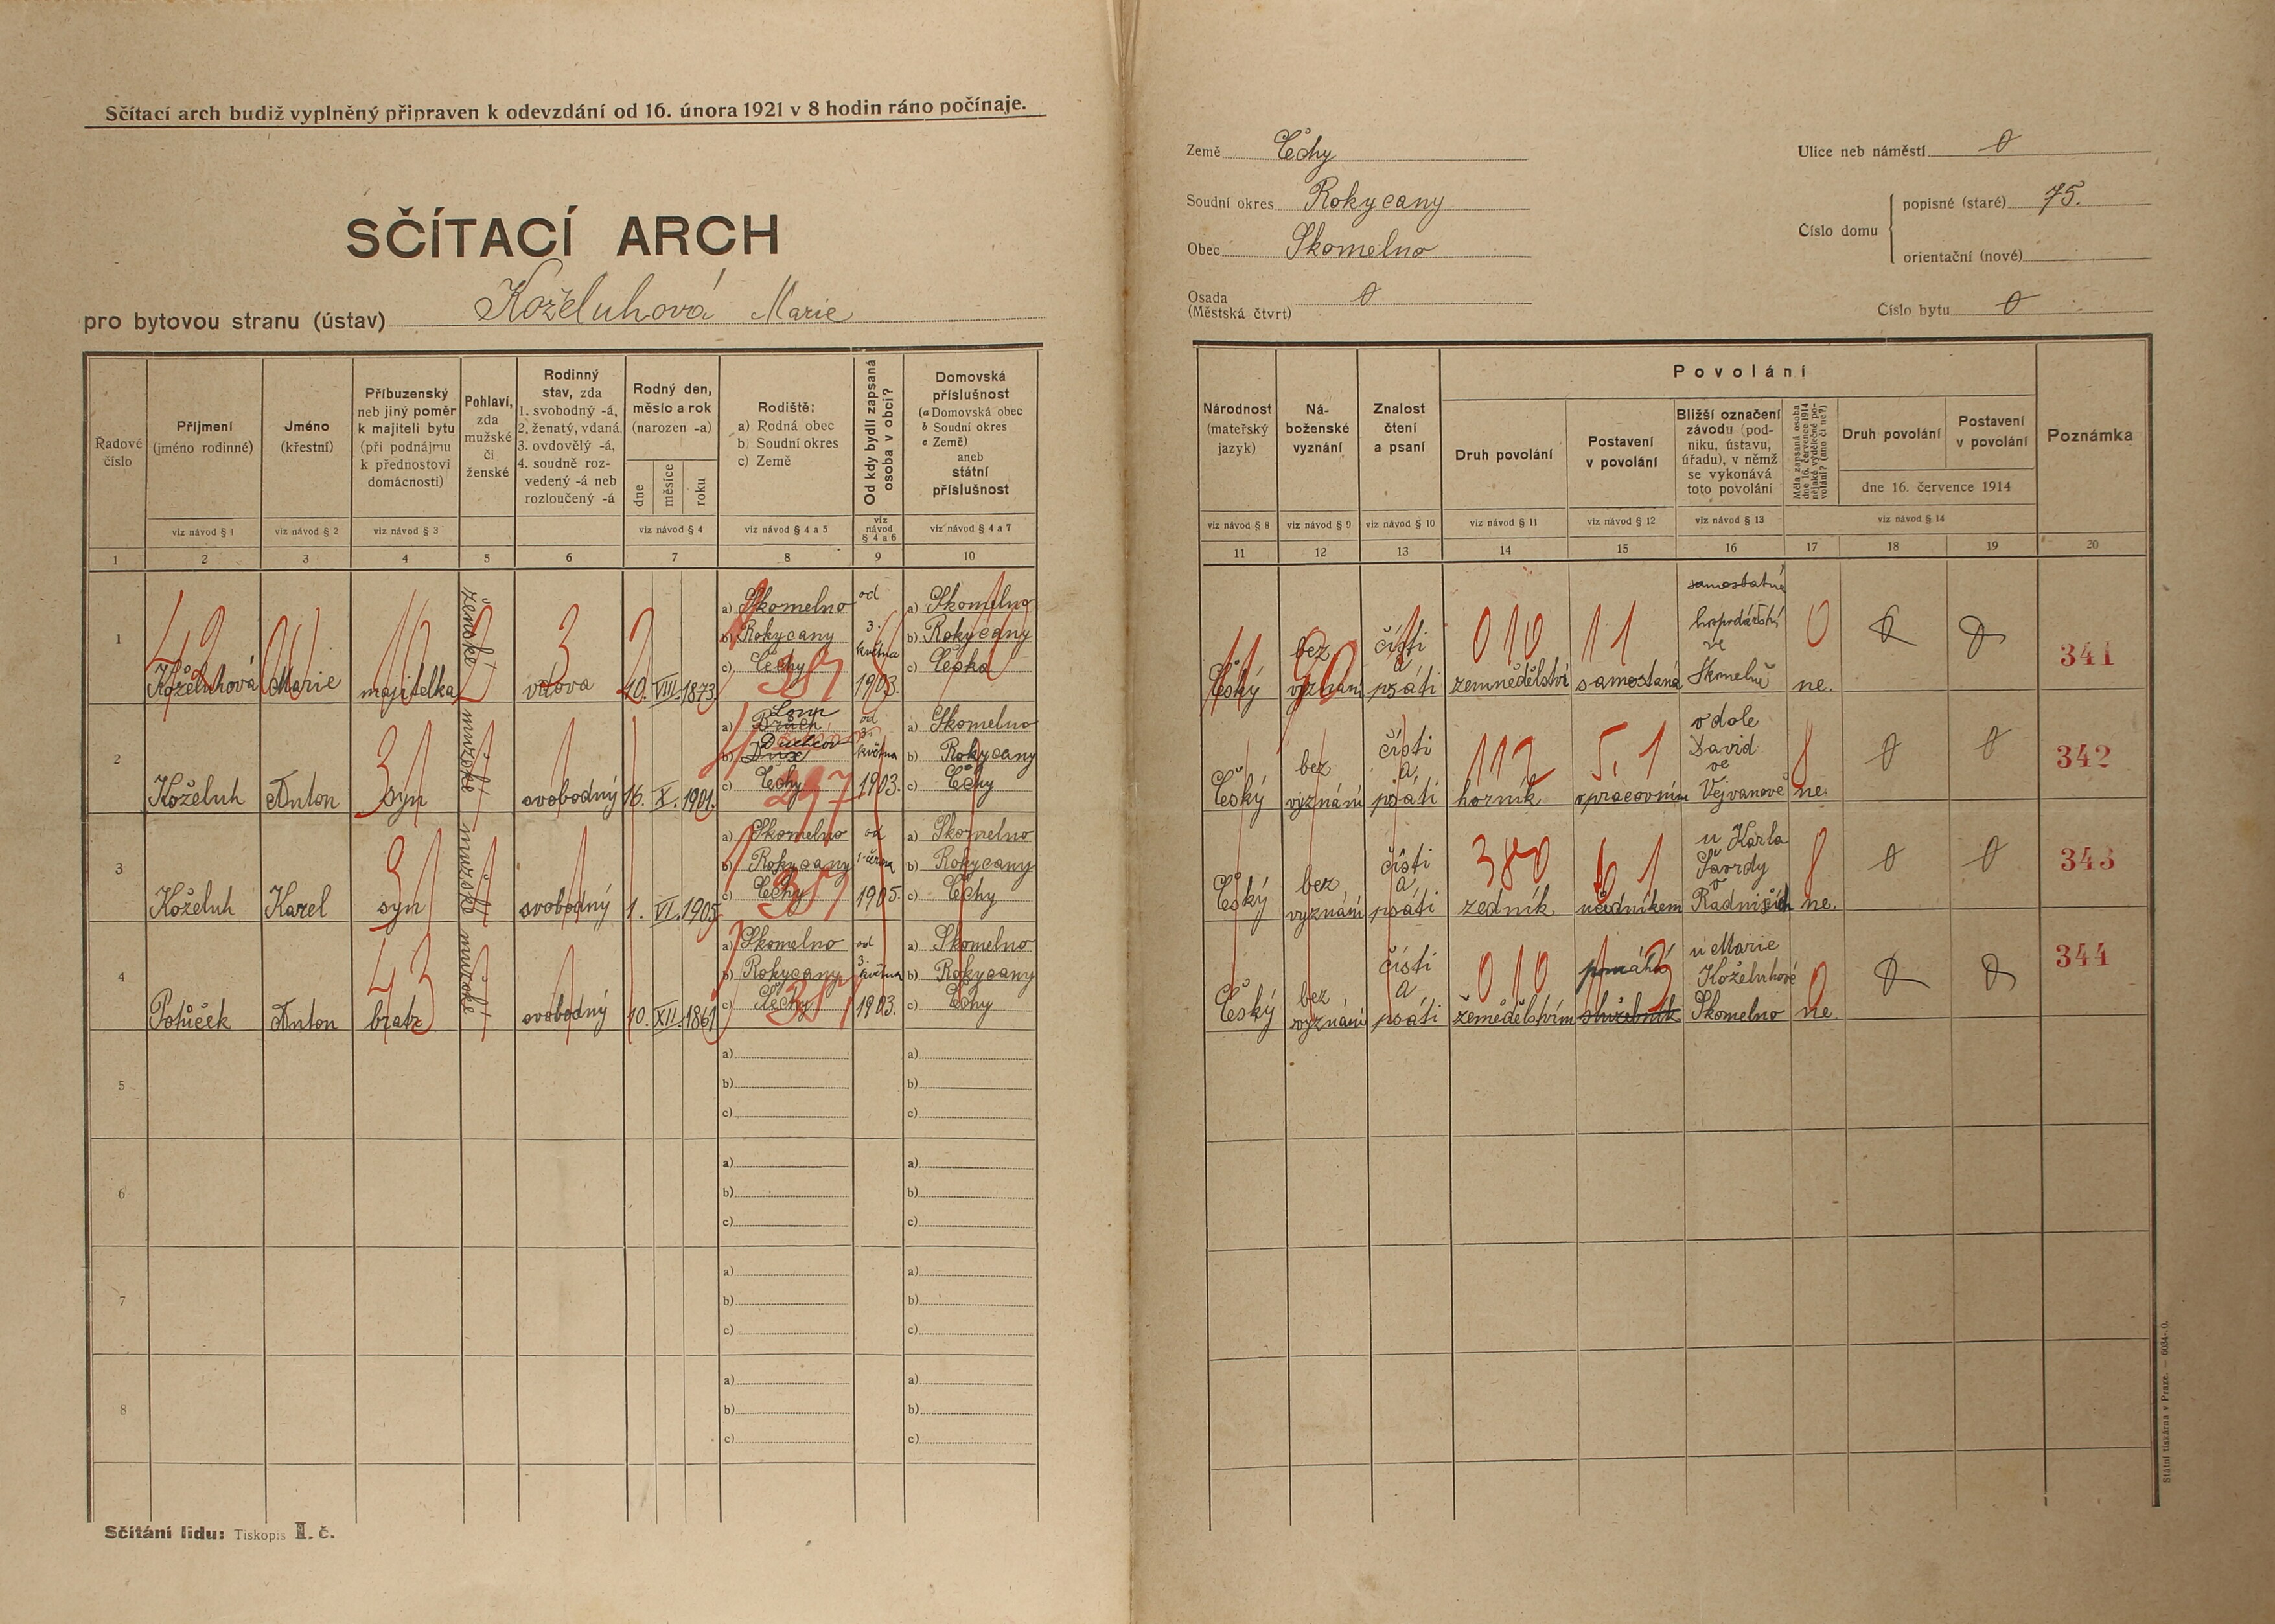 Sčítací arch budiž vyplněný připraven k odevzdání od 16. února 1921 v 8 hodin ráno počínaje.
SČÍTACÍ ARCH
pro bytovou stranu (ústav) Koželuhová Marie
Země Čechy
Soudní okres Rokycany
Obec Skomelno
Osada 0
(Městská čtvrt)
Ulice neb náměstí 0
Číslo domu
popisné (staré) 75.
orientační (nové)
Číslo bytu 0
Řadové
číslo
1
Příjmení
(jméno rodinné)
viz návod § 1
2
Jméno
(křestní)
viz návod § 2
3
Příbuzenský
neb jiný poměr
k majiteli bytu
(při podnájmu
k přednostovi
domácnosti)
viz návod § 3
4
Pohlaví,
zda
mužské
či
ženské
5
Rodinný
stav, zda
1. svobodný -á,
2. ženatý, vdaná
3. ovdovělý -á,
4. soudně roz-
vedený -á neb
rozloučený -á
6
Rodný den,
měsíc a rok
(narozen -a)
dne
měsíce
roku
viz návod § 4
7
Rodiště:
a) Rodná obec
b) Soudní okres
c) Země
viz návod § 4 a 5
8
Od kdy bydlí zapsaná
osoba v obci?
viz
návod
§ 4 a 6
9
Domovská
příslušnost
(a Domovská obec
b Soudní okres
c Země)
aneb
státní
příslušnost
viz návod § 4 a 7
10
Národnost
(mateřský
jazyk)
viz návod § 8
11
Ná-
boženské
vyznání
viz návod § 9
12
Znalost
čtení
a psaní
viz návod § 10
13
Povolání
Druh povolání
viz návod § 11
14
Postavení
v povolání
viz návod § 12
15
Bližší označení
závodu (pod-
niku, ústavu,
úřadu), v němž
se vykonává
toto povolání
viz návod § 13
16
Měla zapsaná osoba
dne 16. července 1914
nějaké výdělečné po-
volání? (ano či ne?)
17
Druh povolání
18
Postavení
v povolání
19
dne 16. července 1914
viz návod § 14
Poznámka
20
1
Koželuhová
Marie
majitelka
ženské
vdova
20. VIII. 1873
a) Skomelno
b) Rokycany
c) Čechy
od
3.
května
1903.
a) Skomelno
b) Rokycany
c) Česko
Český
bez
vyznání
čísti
a
psáti
zemnědělství
samostaná
samostatné
hospodářství
ve
Skomelně
ne.
0
0
341
42 10 2 3 2
351
11 90 010 11 0
2
Koželuh
Anton
syn
mužské
svobodný
16. X. 1901.
a) Bruch
Lom
b) Dux
Duchcov
c) Čechy
od
3.
května
1903.
a) Skomelno
b) Rokycany
c) Čechy
Český
bez
vyznání
čísti
a
psáti
horník
v dole
David
ve
Vejvanově
ne.
0
0
342
112 5. 1
3
Koželuh
Karel
syn
mužské
svobodný
1. VI. 1905
a) Skomelno
b) Rokycany
c) Čechy
od
1905.
a) Skomelno
b) Rokycany
c) Čechy
Český
bez
vyznání
čísti
a
psáti
zedník
učedníkem
u Karla
v
Radnicích
ne.
0
0
343
351
380 6 1
4
Potůček
Anton
bratr
mužské
svobodný
10. XII. 1861
a) Skomelno
b) Rokycany
c) Čechy
od
3.
května
1903.
a) Skomelno
b) Rokycany
c) Čechy
Český
bez
vyznání
čísti
a
psáti
zemědělstvím
pomáhá
služebník
u Marie
Koželuhové
Skomelno
ne
0
0
344
43
351
010 13 0
5
a) a)
b) b)
c) c)
6
a) a)
b) b)
c) c)
7
a) a)
b) b)
c) c)
8
a) a)
b) b)
c) c)
Sčítání lidu: Tiskopis I. č.
Státní tiskárna v Praze. — 6034-.0.